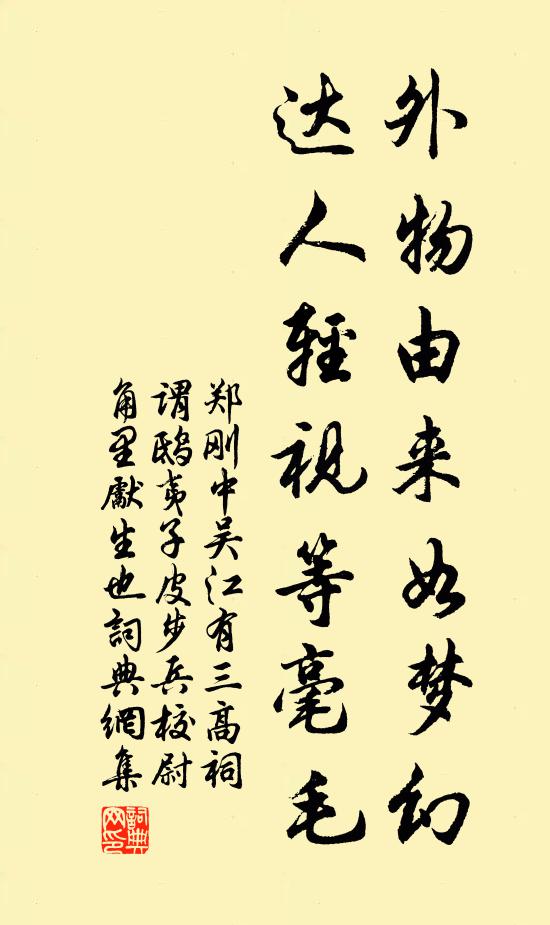 外物由来如梦幻
达人轻视等毫毛
郑刚中吴江有三高祠
谓鸱夷子皮步兵校尉
角里献生也词典網集
詞典網印